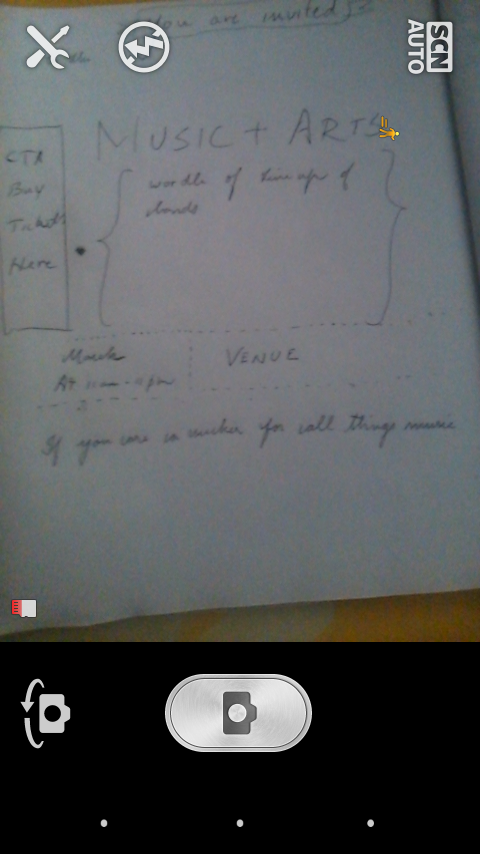 You are invited
SCN
AUTO
MUSIC + ARTS
CTA
Buy
Tickets
Here
wordle of lineup of
bands
March
At 11am - 11pm
VENUE
If you are a sucker for all things music